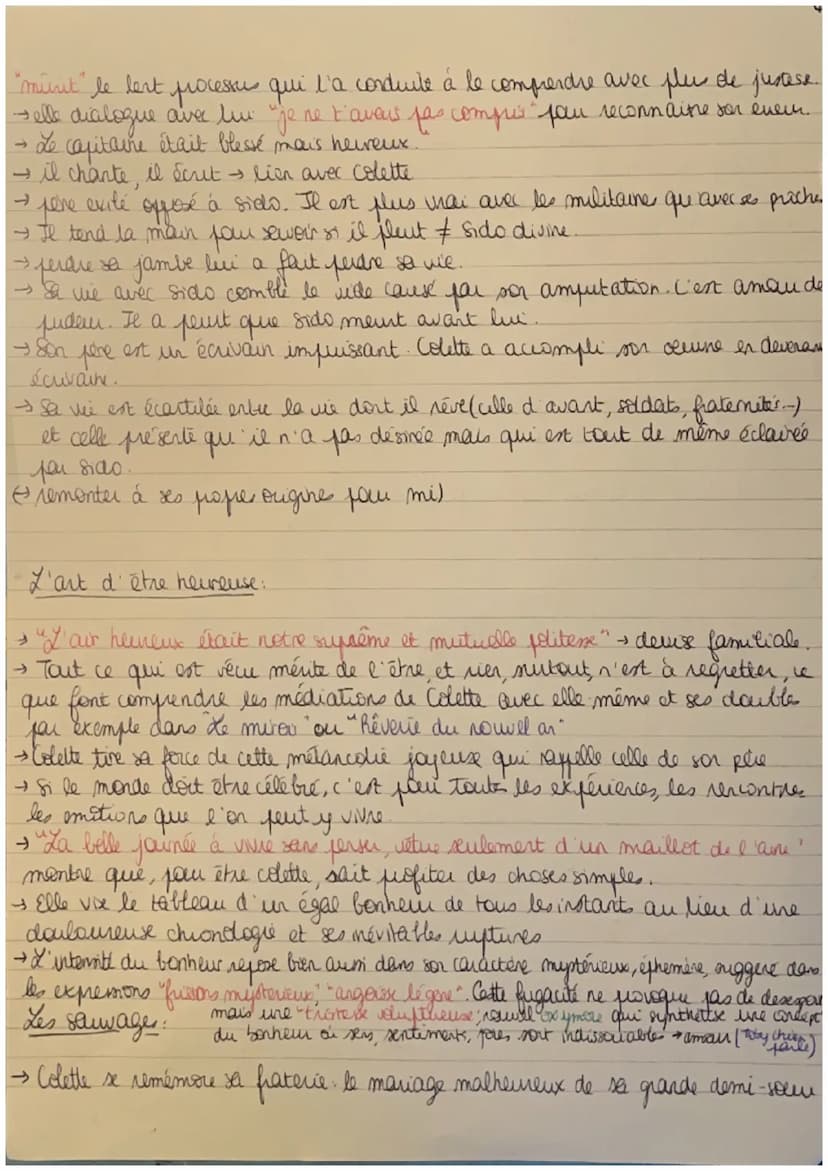 "mûrit" le lent processus qui l'a conduite à le comprendre avec plus de justesse.
→ elle dialogue avec lui "je ne t'avais pas compris" pour reconnaître son erreur.
→ Le capitaine était blessé mais heureux.
→ il chante, il écrit → lien avec Colette
→ père exilé opposé à sido. Il est plus vrai avec les militaires qu'avec ses proches
→ Il tend la main pour savoir si il pleut ≠ Sido divine.
→ perdre sa jambe lui a fait perdre sa vie.
→ Sa vie avec sido comble le vide causé par son amputation. C'est amour de
pudeur. Il a peur que sido meurt avant lui.
→ Son père est un écrivain impuissant. Colette a accompli son oeuvre en devenant
écrivaine.
→ Sa vie est écartelée entre la vie dont il rêve (celle d'avant, soldats, fraternités...)
et celle présente qu'il n'a pas désirée mais qui est tout de même éclairée
par sido.
remonter à ses propres origines pour
L'art d'être heureuse:
→ "L'air heureux était notre suprême et mutuelle politesse" → devise familiale.
→ Tout ce qui est vécu mérite de l'être, et rien, surtout, n'est à regretter, ce
que font comprendre les médiations de Colette avec elle même et ses doubles
par exemple dans "Le miroir" ou "Rêverie du nouvel an"
→ Colette tire sa force de cette mélancolie joyeuse qui rappelle celle de son père
→ Si le monde doit être célébré, c'est pour toutes les expériences, les rencontres
les émotions que l'on peut y vivre.
→ "La belle journée à vivre sans penser, vêtue seulement d'un maillot de l'aine"
montre que, pour être colette, sait profiter des choses simples.
→ Elle vise le tableau d'un égal bonheur de tous les instants au lieu d'une
douloureuse chronologie et ses inévitables ruptures
→ L'intensité du bonheur repose bien aussi dans son caractère mystérieux, éphémère, suggéré dans
les expressions "frissons mystérieux", "angoisse légère". Cette fugacité ne provoque pas de désespoir
mais une "tristesse voluptueuse", nouvel oxymore qui synthétise une concept
Les sauvages:
du bonheur où sens, sentiments, joies sont indissociables → amour (Toby chien parle)
→ Colette se remémore sa fraterie: le mariage malheureux de sa grande demi-soeur